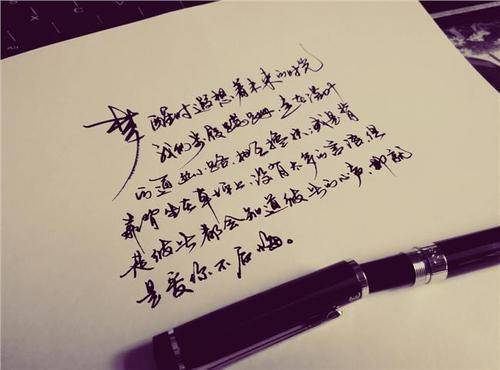 梦醒时遐想着未来的时光
我们步履蹒跚,走在落叶
的道路,相互搀扶,或是背
靠背坐在草坪上,没有太多的言语但
是彼此都会知道彼此的心声,那就
是爱你不后悔。